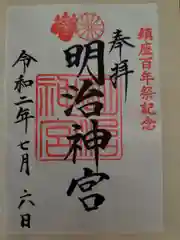 鎮座百年祭記念
奉拝
明治神宮
令和二年七月六日
明治神宮